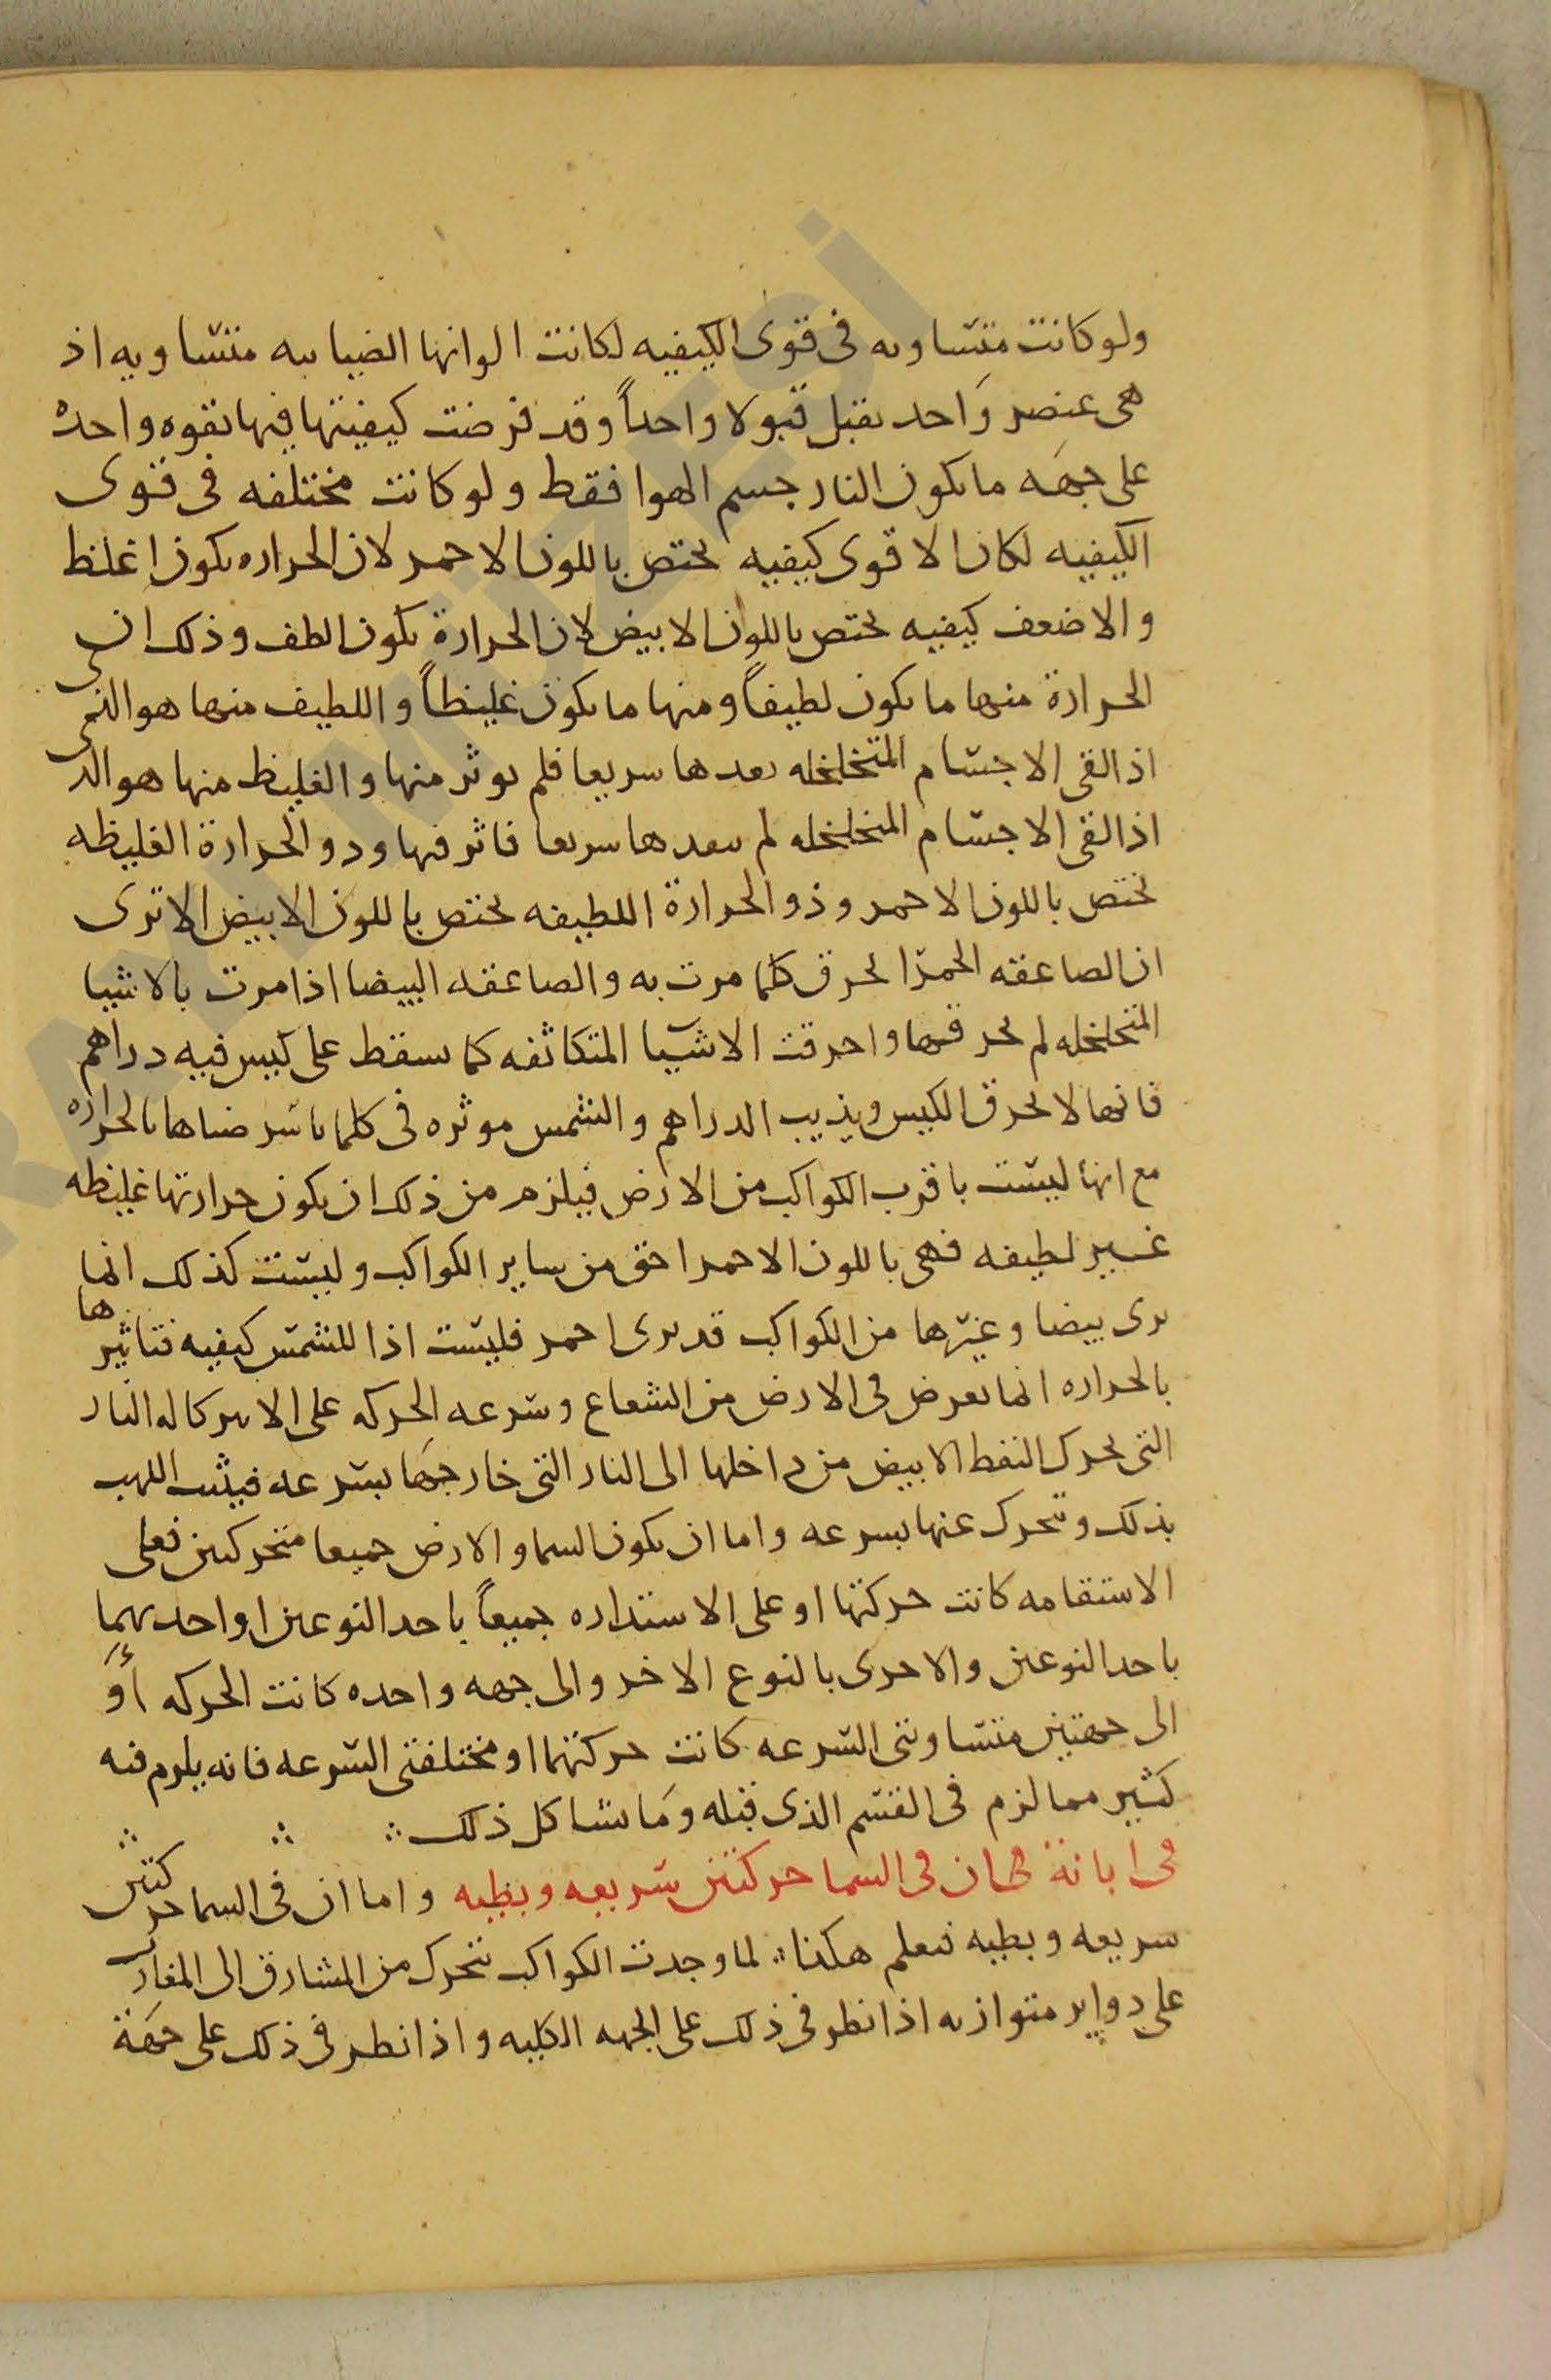 ولو كانت متساويه فى قوى الكيفيه لكانت الوانها الضيابيه متساويه اذ
هى عنصر واحد يقبل قبولا واحداً وقد فرضت كيفيتها فيها بقوه واحدة
على جهه ما يكون النار جسم الهوا فقط ولو كانت مختلفه فى قوى
الكيفيه لكان الاقوى كيفيه يختص باللون الاحمر لان الحراره يكون اغلظ
والاضعف كيفيه يختص باللون الابيض لان الحرارة يكون الطف وذلك ان
الحرارة منها ما يكون لطيفاً ومنها ما يكون غليظاً واللطيف منها هو الذى
اذا لقى الاجسام المتخلخله بعدها سريعا فلم يوثر منها والغليظ منها هو الذى
اذا لقى الاجسام المتخلخله لم ينفدها سريعا فاثر فيها وذو الحرارة الغليظه
يختص باللون الاحمر وذو الحرارة اللطيفه يختص باللون الابيض الا ترى
ان الصاعقه الحمرا تحرق كلما مرت به والصاعقه البيضا اذا مرت بالاشيا
المتخلخله لم تحرقها واحرقت الاشيا المتكاثفه كما يسقط على كيس فيه دراهم
فانها لا تحرق الكيس ويذيب الدراهم والشمس موثره فى كلما باشر ضياها بالحراره
مع انها ليست باقرب الكواكب من الارض فيلزم من ذلك ان يكون حرارتها غليظه
غير لطيفه فهى باللون الاحمر احق من ساير الكواكب وليست كذلك انما
يرى بيضا وغيرها من الكواكب قد يرى احمر فليست اذا للشمس كيفيه فتاثيرها
بالحراره انما يعرض فى الارض من الشعاع وسرعه الحركه على الاير كاله النار
التى يحرك النفط الابيض من داخلها الى النار التى خارجها بسرعه فيثب اللهب
بذلك ويتحرك عنها بسرعه واما ان يكون السما والارض جميعا متحركين فعلى
الاستقامه كانت حركتها او على الاستداره جميعاً باحد النوعين او احديهما
باحد النوعين والاخرى بالنوع الاخر والى جهه واحده كانت الحركه او
الى جهتين متساويتى السرعه كانت حركتهما او مختلفتى السرعه فانه يلزم فيه
كثير مما لزم فى القسم الذى قبله وما يشاكل ذلك
فى ابانة ان فى السما حركتين سريعه وبطيه واما ان فى السما حركتين
سريعه وبطيه فيعلم هكذا لما وجدت الكواكب يتحرك من المشارق الى المغارب
على دواير متوازيه اذا نظر فى ذلك على الجهه الكليه واذا نظر فى ذلك على جهة